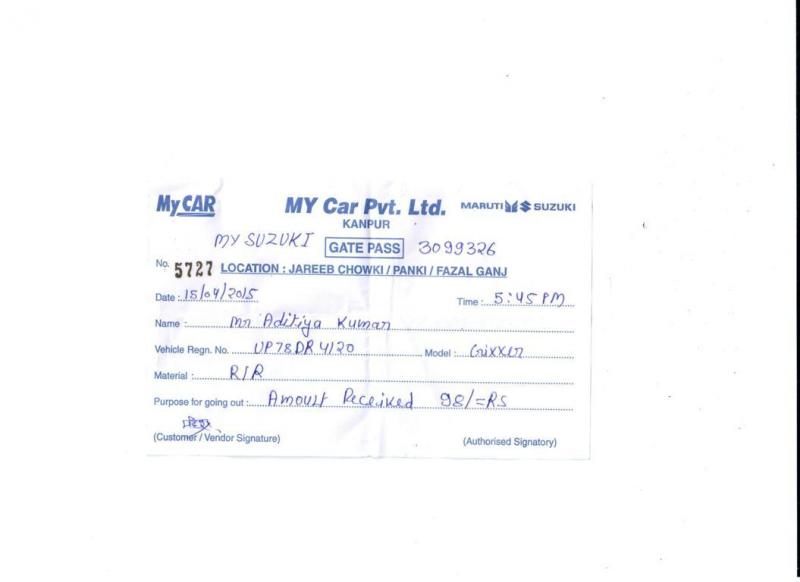 MyCAR MY Car Pvt. Ltd. MARUTI SUZUKI
KANPUR
MY SUZUKI GATE PASS 3099326
No. 5727 LOCATION : JAREEB CHOWKI / PANKI / FAZAL GANJ
Date :.15/04/2015 Time :. 5:45 PM
Name :. Mr Aditiya Kumar
Vehicle Regn. No. UP78DR4120 Model :. Gixxer
Material :. R/R
Purpose for going out :. Amount Received 98/=RS
(Customer / Vendor Signature) (Authorised Signatory)